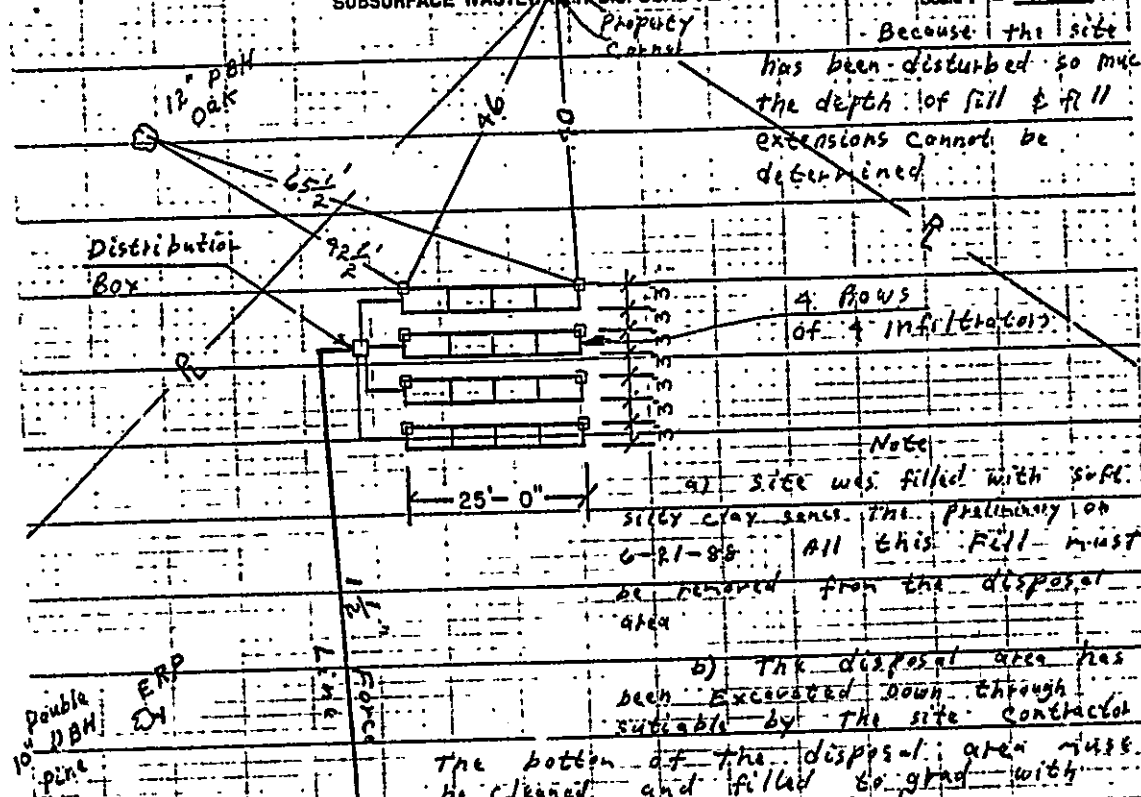 SUBSURFACE WASTEWATER DISPOSAL
Property
Corner
Because the site
has been disturbed so muc
the depth of fill & fill
extensions cannot be
determined
12" DBH
Oak
46
40
65 1/2'
92 1/2'
Distribution
Box
PL
PL
4 Rows
of 4 infiltrators
3'
3'
3'
3'
3'
3'
3'
25'- 0"
Note
a) Site was filled with soft
silty clay sence the preliminary on
6-21-88 All this Fill must
be removed from the disposal
area
b) The disposal area has
been Excavated Down through
sutiable by the site contractor
The botton of the disposal area muse
be cleaned and filled to grad with
Force
Line
ERP
10" Double
DBH
pine